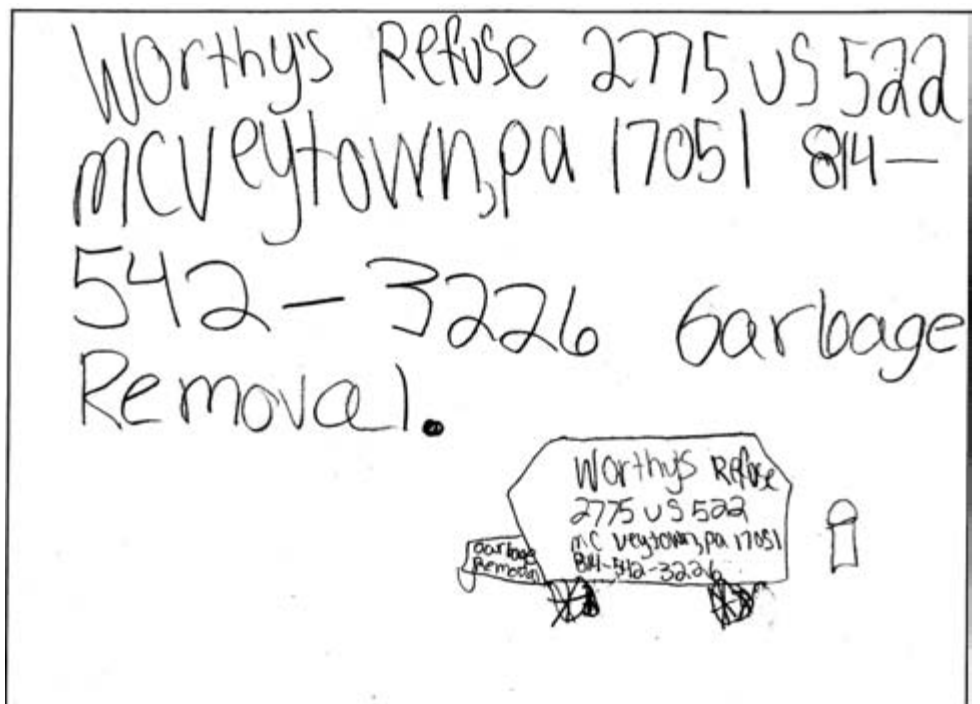 Worthy's Refuse 2775 US 522
mcveytown,pa 17051 814-
542-3226 Garbage
Removal.
Worthy's Refuse
2775 US 522
mc veytown,pa 17051
814-542-3226
Garbage
Removal